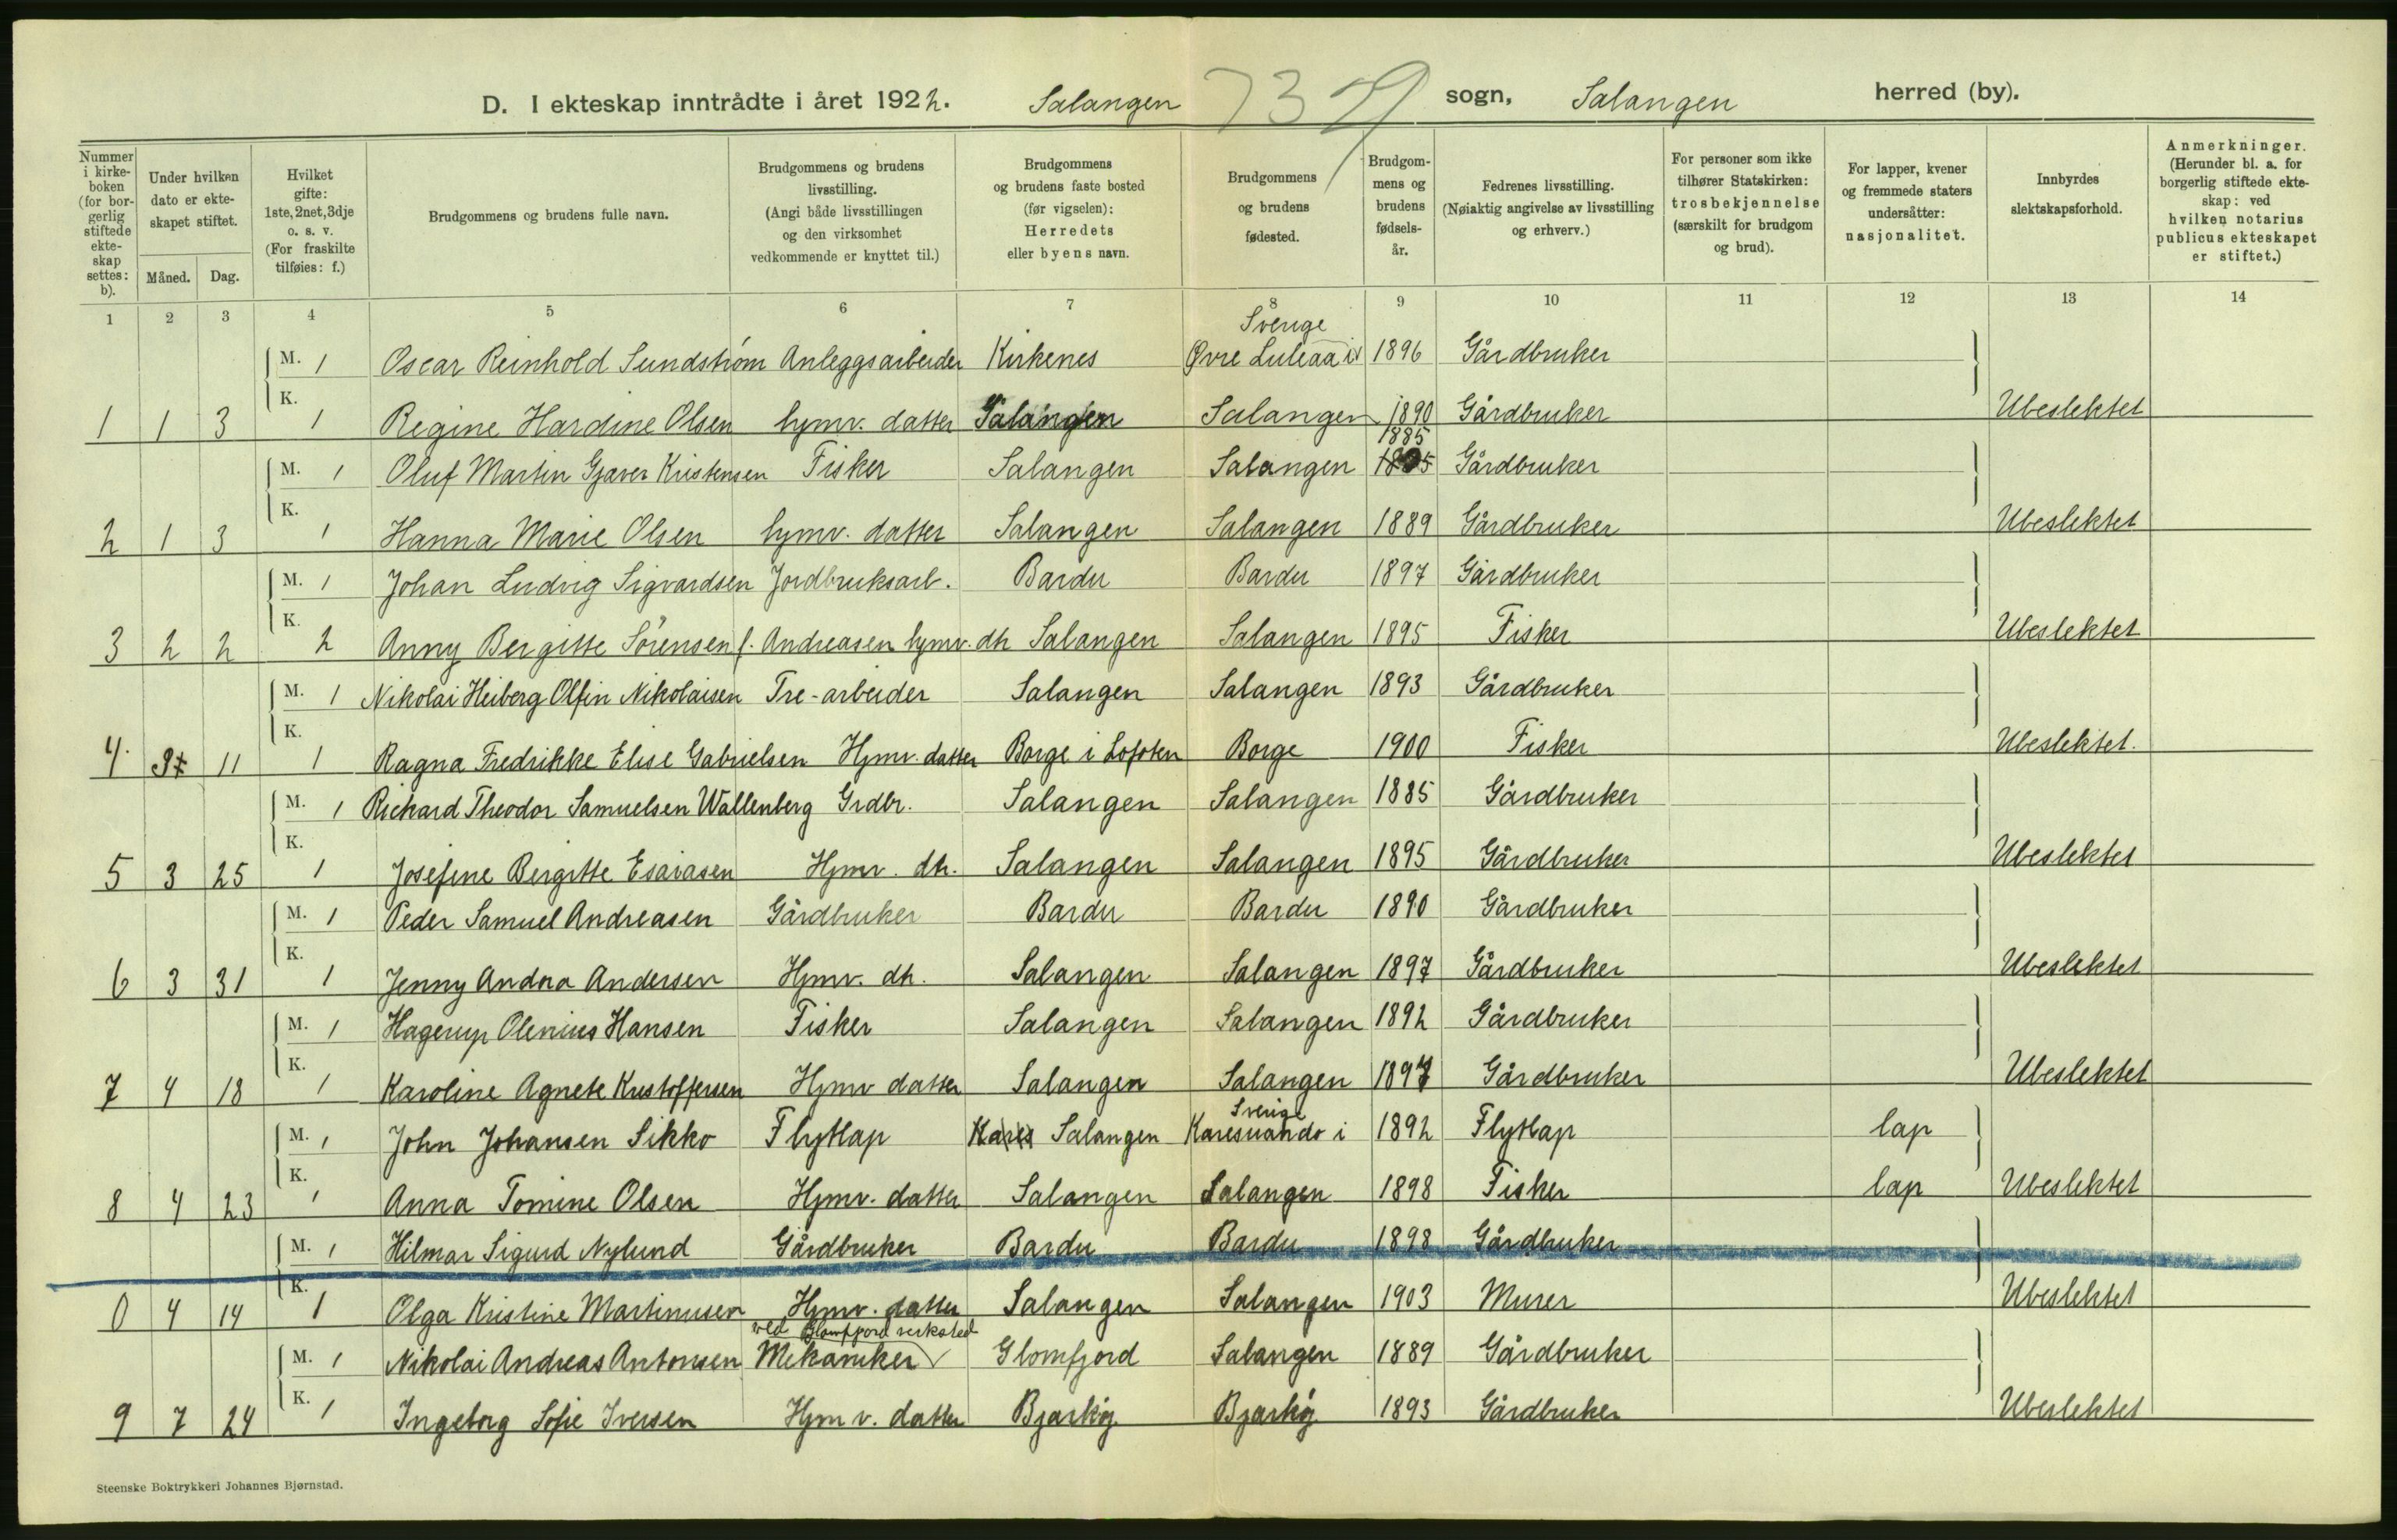 D. I ekteskap inntrådte i året 1922. Salangen 7329 sogn, Salangen herred (by).
Nummer i kirke-boken (for bor-gerlig stiftede ekte-skap settes: b).
Under hvilken dato er ekte-skapet stiftet.
Måned. Dag.
Hvilket gifte: 1ste, 2net, 3dje o. s. v. (For fraskilte tilføies: f.)
Brudgommens og brudens fulle navn.
Brudgommens og brudens livsstilling. (Angi både livsstillingen og den virksomhet vedkommende er knyttet til.)
Brudgommens og brudens faste bosted (før vigselen): Herredets eller byens navn.
Brudgommens og brudens fødested.
Brudgom-mens og brudens fødsels-år.
Fedrenes livsstilling. (Nøiaktig angivelse av livsstilling og erhverv.)
For personer som ikke tilhører Statskirken: trosbekjennelse (særskilt for brudgom og brud).
For lapper, kvener og fremmede staters undersåtter: nasjonalitet.
Innbyrdes slektskapsforhold.
Anmerkninger. (Herunder bl. a. for borgerlig stiftede ekte-skap: ved hvilken notarius publicus ekteskapet er stiftet.)
1 2 3 4 5 6 7 8 9 10 11 12 13 14
M. 1 Oscar Reinhold Sundstrøm Anleggsarbeider Kirkenes Øvre Luleaa i Sverige 1896 Gårdbruker
1 1 3 K. 1 Regine Hardine Olsen hjmv. datter Salangen Salangen 1890 Gårdbruker Ubeslektet
M. 1 Oluf Martin Gjæver Kristensen Fisker Salangen Salangen 1885 Gårdbruker
2 1 3 K. 1 Hanna Marie Olsen hjmv. datter Salangen Salangen 1889 Gårdbruker Ubeslektet
M. 1 Johan Ludvig Sigvardsen Jordbruksarb. Bardu Bardu 1897 Gårdbruker
3 2 2 K. 2 Anny Bergitte Sörensen f. Andreasen hjmv. dtr Salangen Salangen 1895 Fisker Ubeslektet
M. 1 Nikolai Heiberg Olfin Nikolaisen Tre-arbeider Salangen Salangen 1893 Gårdbruker
4. 11 K. 1 Ragna Fredrikke Elise Gabrielsen Hjmv. datter Borge i Lofoten Borge 1900 Fisker Ubeslektet.
M. 1 Richard Theodor Samuelsen Wallenberg Grdbr. Salangen Salangen 1885 Gårdbruker
5 3 25 K. 1 Josefine Bergitte Esaiasen Hjmv. dtr. Salangen Salangen 1895 Gårdbruker Ubeslektet
M. 1 Peder Samuel Andreasen Gårdbruker Bardu Bardu 1890 Gårdbruker
6 3 31 K. 1 Jenny Andrea Andersen Hjmv. dtr. Salangen Salangen 1897 Gårdbruker Ubeslektet
M. 1 Hagerup Olenius Hansen Fisker Salangen Salangen 1892 Gårdbruker
7 4 18 K. 1 Karoline Agnete Kristoffersen Hjmv datter Salangen Salangen 1897 Gårdbruker Ubeslektet
M. 1 John Johansen Sikko Flytlap Kares Salangen Karesuando i Sverige 1892 Flytlap lap
8 4 23 K. 1 Anna Tomine Olsen Hjmv. datter Salangen Salangen 1898 Fisker lap Ubeslektet
M. 1 Hilmar Sigurd Nylund Gårdbruker Bardu Bardu 1898 Gårdbruker
0 4 14 K. 1 Olga Kristine Martinusen Hjmv. datter Salangen Salangen 1903 Murer Ubeslektet
M. 1 Nikolai Andreas Antonsen Mekaniker ved Glomfjord verksted Glomfjord Salangen 1889 Gårdbruker
9 7 24 K. 1 Ingeborg Sofie Iversen Hjmv. datter Bjarköy Bjarköy 1893 Gårdbruker Ubeslektet
Steenske Boktrykkeri Johannes Bjørnstad.